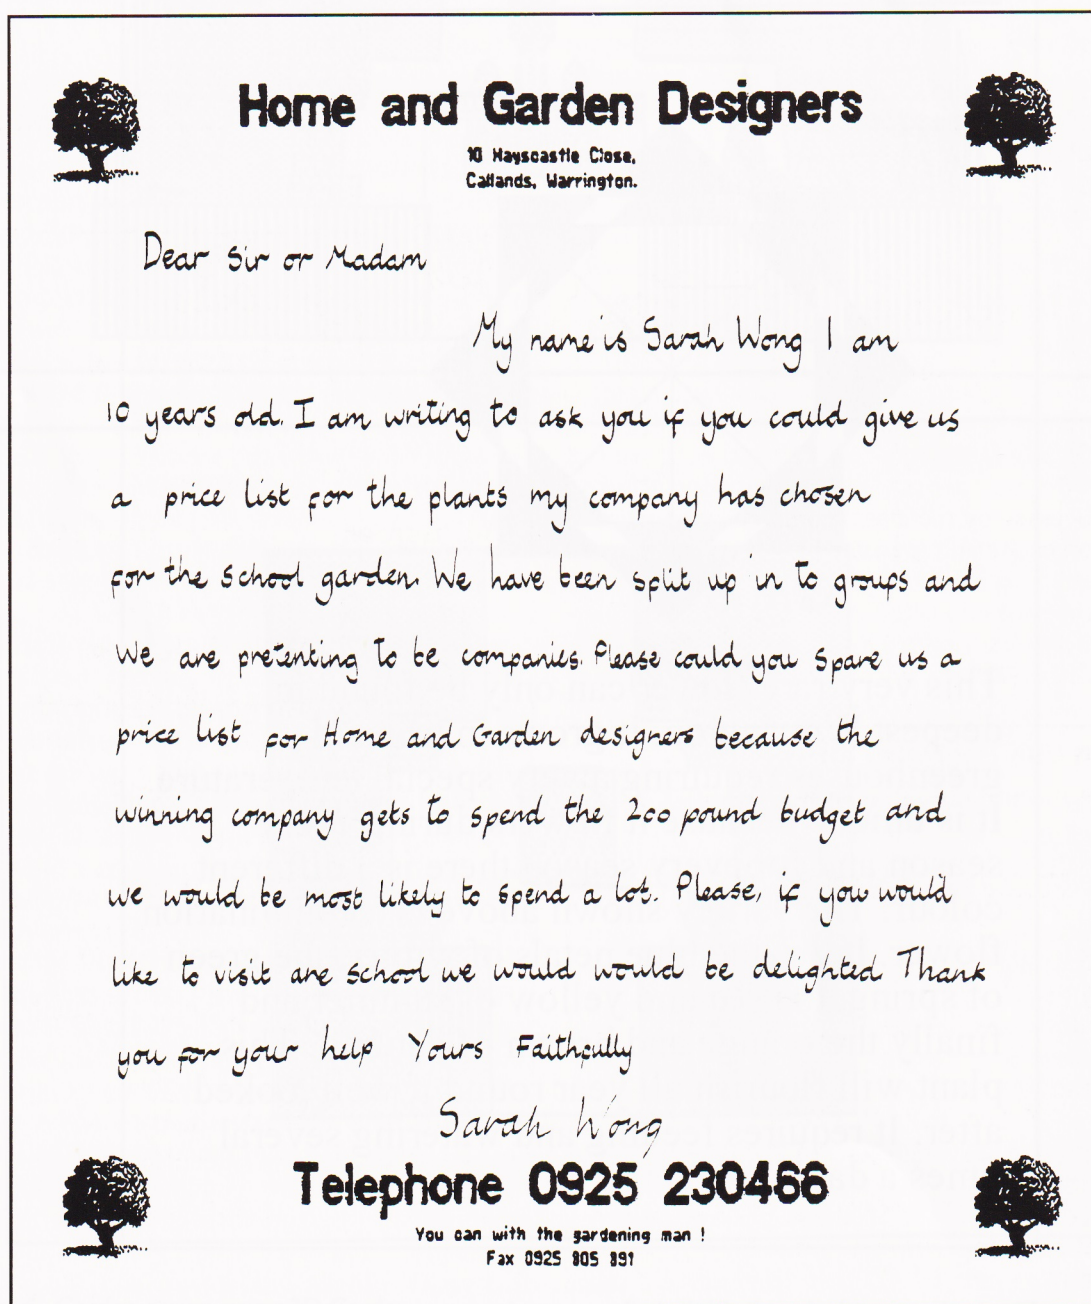 Home and Garden Designers
10 Hayscastle Close,
Callands, Warrington.
Dear Sir or Madam
My name is Sarah Wong I am
10 years old. I am writing to ask you if you could give us
a price list for the plants my company has chosen
for the school garden. We have been split up in to groups and
We are pretenting to be companies. Please could you spare us a
price list for Home and Garden designers because the
winning company gets to spend the 200 pound budget and
we would be most likely to spend a lot. Please, if you would
like to visit are school we would would be delighted Thank
you for your help Yours Faithfully
Sarah Wong
Telephone 0925 230466
You can with the gardening man !
Fax 0925 805 891